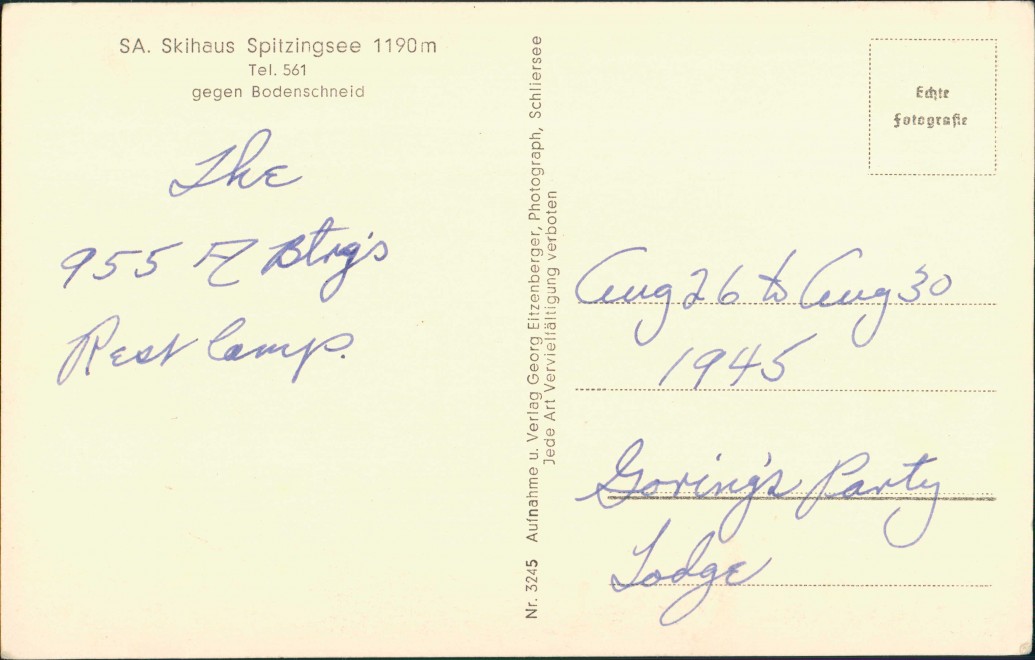 SA. Skihaus Spitzingsee 1190m
Tel. 561
gegen Bodenschneid
The
955 FA Btry's
Rest Camp.
Nr. 3245 Aufnahme u. Verlag Georg Eitzenberger, Photograph, Schliersee
Jede Art Vervielfältigung verboten
Echte
Fotografie
Aug 26 to Aug 30
1945
Goring's Party
Lodge